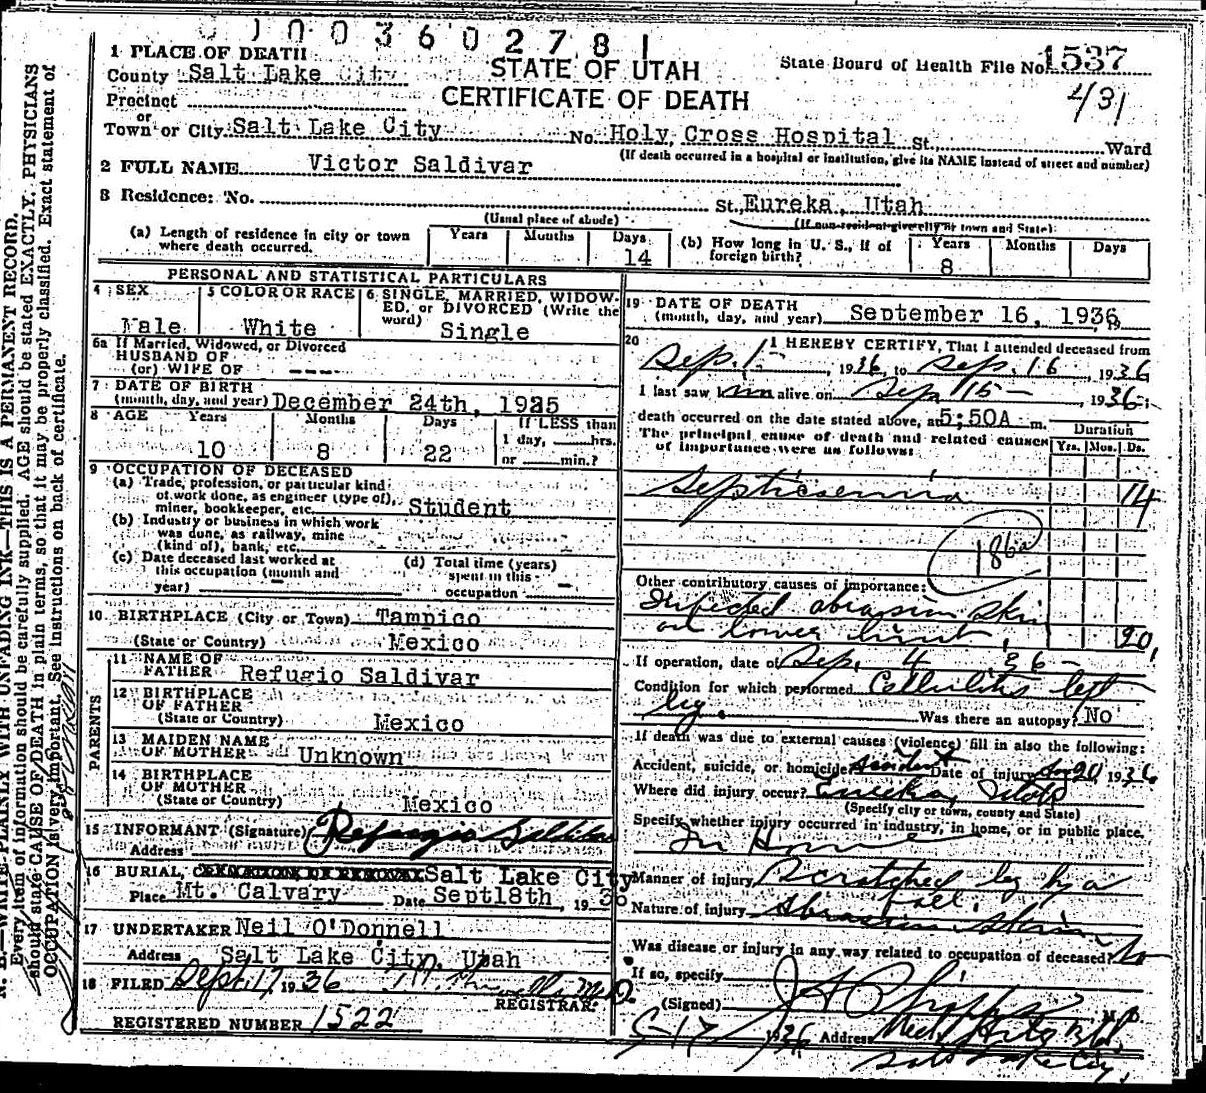 0 1 0 0 3 6 0 2 7 8 1
1 PLACE OF DEATH
STATE OF UTAH
CERTIFICATE OF DEATH
State Board of Health File No. 1537
431
County Salt Lake City
Precinct
or
Town or City Salt Lake City No. Holy Cross Hospital St. Ward
(If death occurred in a hospital or institution, give its NAME instead of street and number)
2 FULL NAME Victor Saldivar
3 Residence: No. St. Eureka, Utah
(Usual place of abode) (If non-resident give city or town and State)
(a) Length of residence in city or town where death occurred. Years Months Days 14
(b) How long in U. S., if of foreign birth? Years 8 Months Days
PERSONAL AND STATISTICAL PARTICULARS
4 SEX Male
5 COLOR OR RACE White
6 SINGLE, MARRIED, WIDOWED, or DIVORCED (Write the word) Single
6a If Married, Widowed, or Divorced
HUSBAND OF
(or) WIFE OF ---
7 DATE OF BIRTH
(month, day, and year) December 24th, 1925
8 AGE Years 10 Months 8 Days 22 If LESS than 1 day, hrs. or min.?
9 OCCUPATION OF DECEASED
(a) Trade, profession, or particular kind of work done, as engineer (type of), miner, bookkeeper, etc. Student
(b) Industry or business in which work was done, as railway, mine (kind of), bank, etc.
(c) Date deceased last worked at this occupation (month and year)
(d) Total time (years) spent in this occupation -
10 BIRTHPLACE (City or Town) Tampico
(State or Country) Mexico
PARENTS
11 NAME OF FATHER Refugio Saldivar
12 BIRTHPLACE OF FATHER
(State or Country) Mexico
13 MAIDEN NAME OF MOTHER Unknown
14 BIRTHPLACE OF MOTHER
(State or Country) Mexico
15 INFORMANT (Signature) Refugio Saldivar
Address
16 BURIAL, CREMATION OR REMOVAL Salt Lake City
Place Mt. Calvary Date Sept 18th, 1936
17 UNDERTAKER Neil O'Donnell
Address Salt Lake City, Utah
18 FILED Sept. 17 1936
REGISTRAR.
REGISTERED NUMBER 1522
19 DATE OF DEATH
(month, day, and year) September 16, 1936
20 I HEREBY CERTIFY, That I attended deceased from
Sep. 1 -, 1936, to Sep. 16, 1936
I last saw him alive on Sep 15 -, 1936;
death occurred on the date stated above, at 5:50A m.
The principal cause of death and related causes of importance were as follows:
Duration
Yrs. Mos. Ds.
Septicaemia 14
186a
Other contributory causes of importance:
Infected abrasion skin
on lower limb, 20,
If operation, date of Sep. 4 36 -
Condition for which performed Cellulitis left
leg. Was there an autopsy? No
If death was due to external causes (violence) fill in also the following:
Accident, suicide, or homicide? Accident Date of injury 20 1936
Where did injury occur? Eureka, Utah
(Specify city or town, county and State)
Specify whether injury occurred in industry, in home, or in public place.
In Home
Manner of injury Scratched leg by a
fall.
Nature of injury Abrasion skin
Was disease or injury in any way related to occupation of deceased? No
If so, specify
(Signed) M. D.
9-17 1936 Address Med. Arts Bld.
Salt Lake City,
N. B.—WRITE PLAINLY WITH UNFADING INK—THIS IS A PERMANENT RECORD.
Every item of information should be carefully supplied. AGE should be stated EXACTLY. PHYSICIANS
should state CAUSE OF DEATH in plain terms, so that it may be properly classified. Exact statement of
OCCUPATION is very important. See instructions on back of certificate.